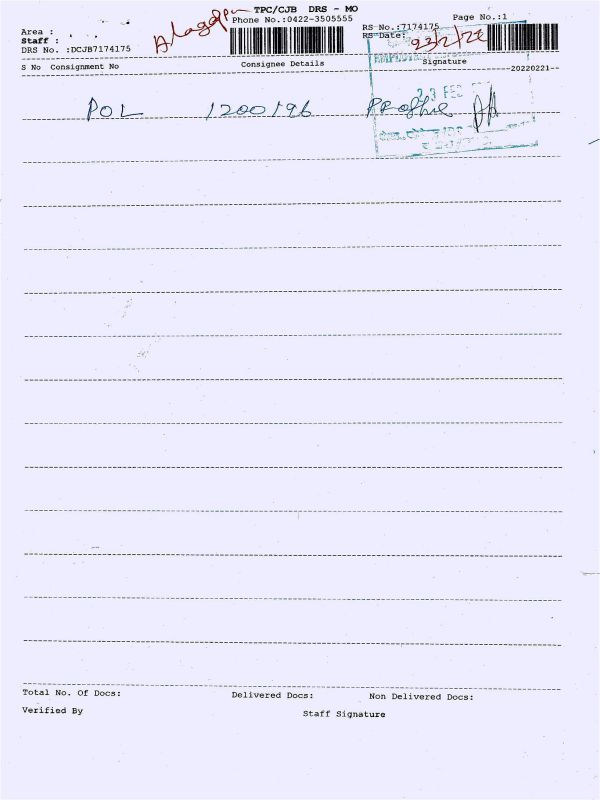 TPC/CJB DRS - MO
Phone No.:0422-3505555
Page No.:1
Area :
Staff :
DRS No. :DCJB7174175
RS No.:7174175
RS Date:
23/2/22
S No Consignment No
Consignee Details
Signature
20220221--
23 FEB
POL 1200196
Total No. Of Docs:
Delivered Docs:
Non Delivered Docs:
Verified By
Staff Signature